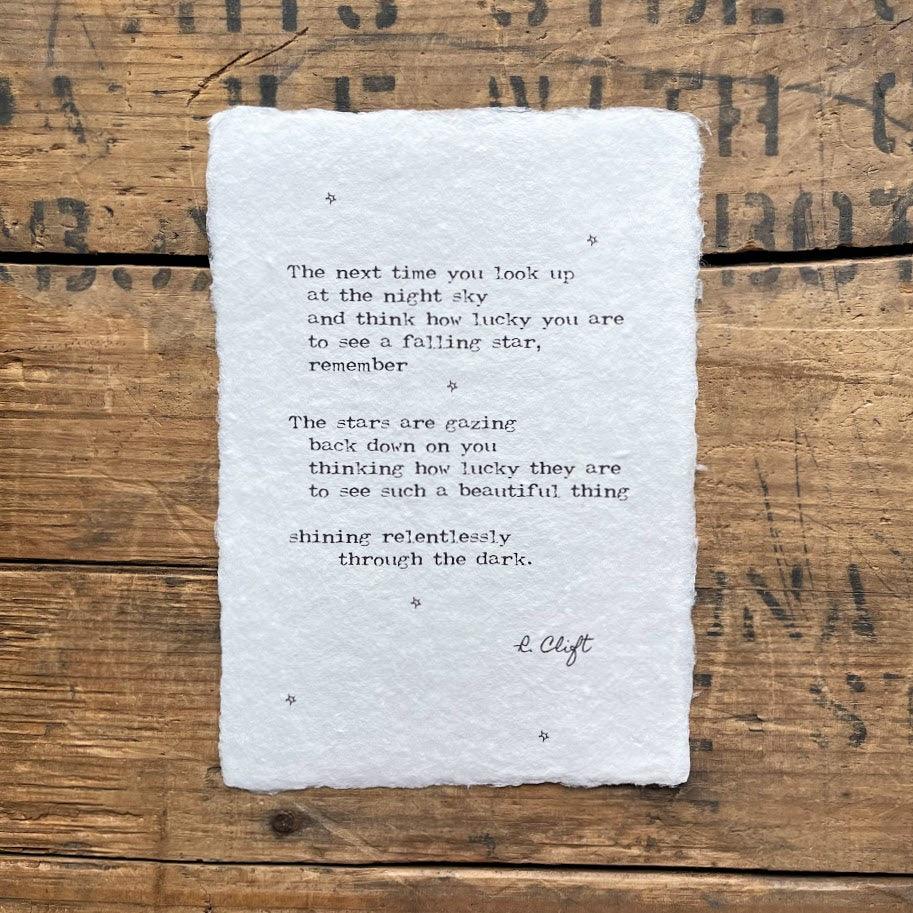 The next time you look up
at the night sky
and think how lucky you are
to see a falling star,
remember
The stars are gazing
back down on you
thinking how lucky they are
to see such a beautiful thing
shining relentlessly
through the dark.
R. Clift